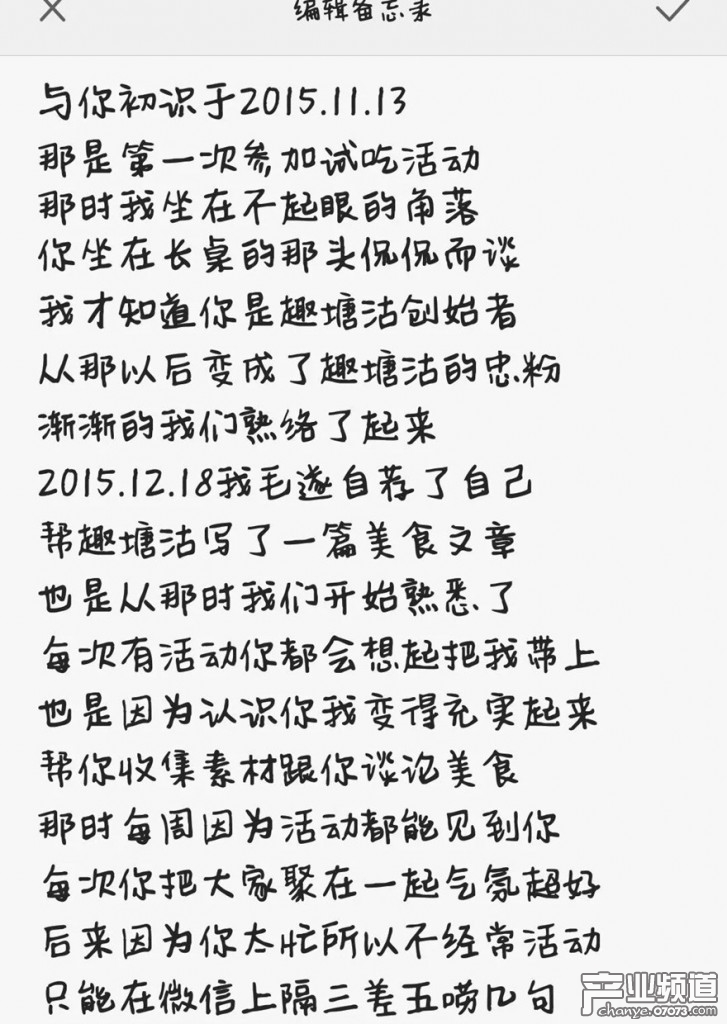 编辑备忘录
与你初识于2015.11.13
那是第一次参加试吃活动
那时我坐在不起眼的角落
你坐在长桌的那头侃侃而谈
我才知道你是趣塘沽创始者
从那以后变成了趣塘沽的忠粉
渐渐的我们熟络了起来
2015.12.18我毛遂自荐了自己
帮趣塘沽写了一篇美食文章
也是从那时我们开始熟悉了
每次有活动你都会想起把我带上
也是因为认识你我变得充实起来
帮你收集素材跟你谈论美食
那时每周因为活动都能见到你
每次你把大家聚在一起气氛超好
后来因为你太忙所以不经常活动
只能在微信上隔三差五唠几句
产业频道
chanye.07073.com